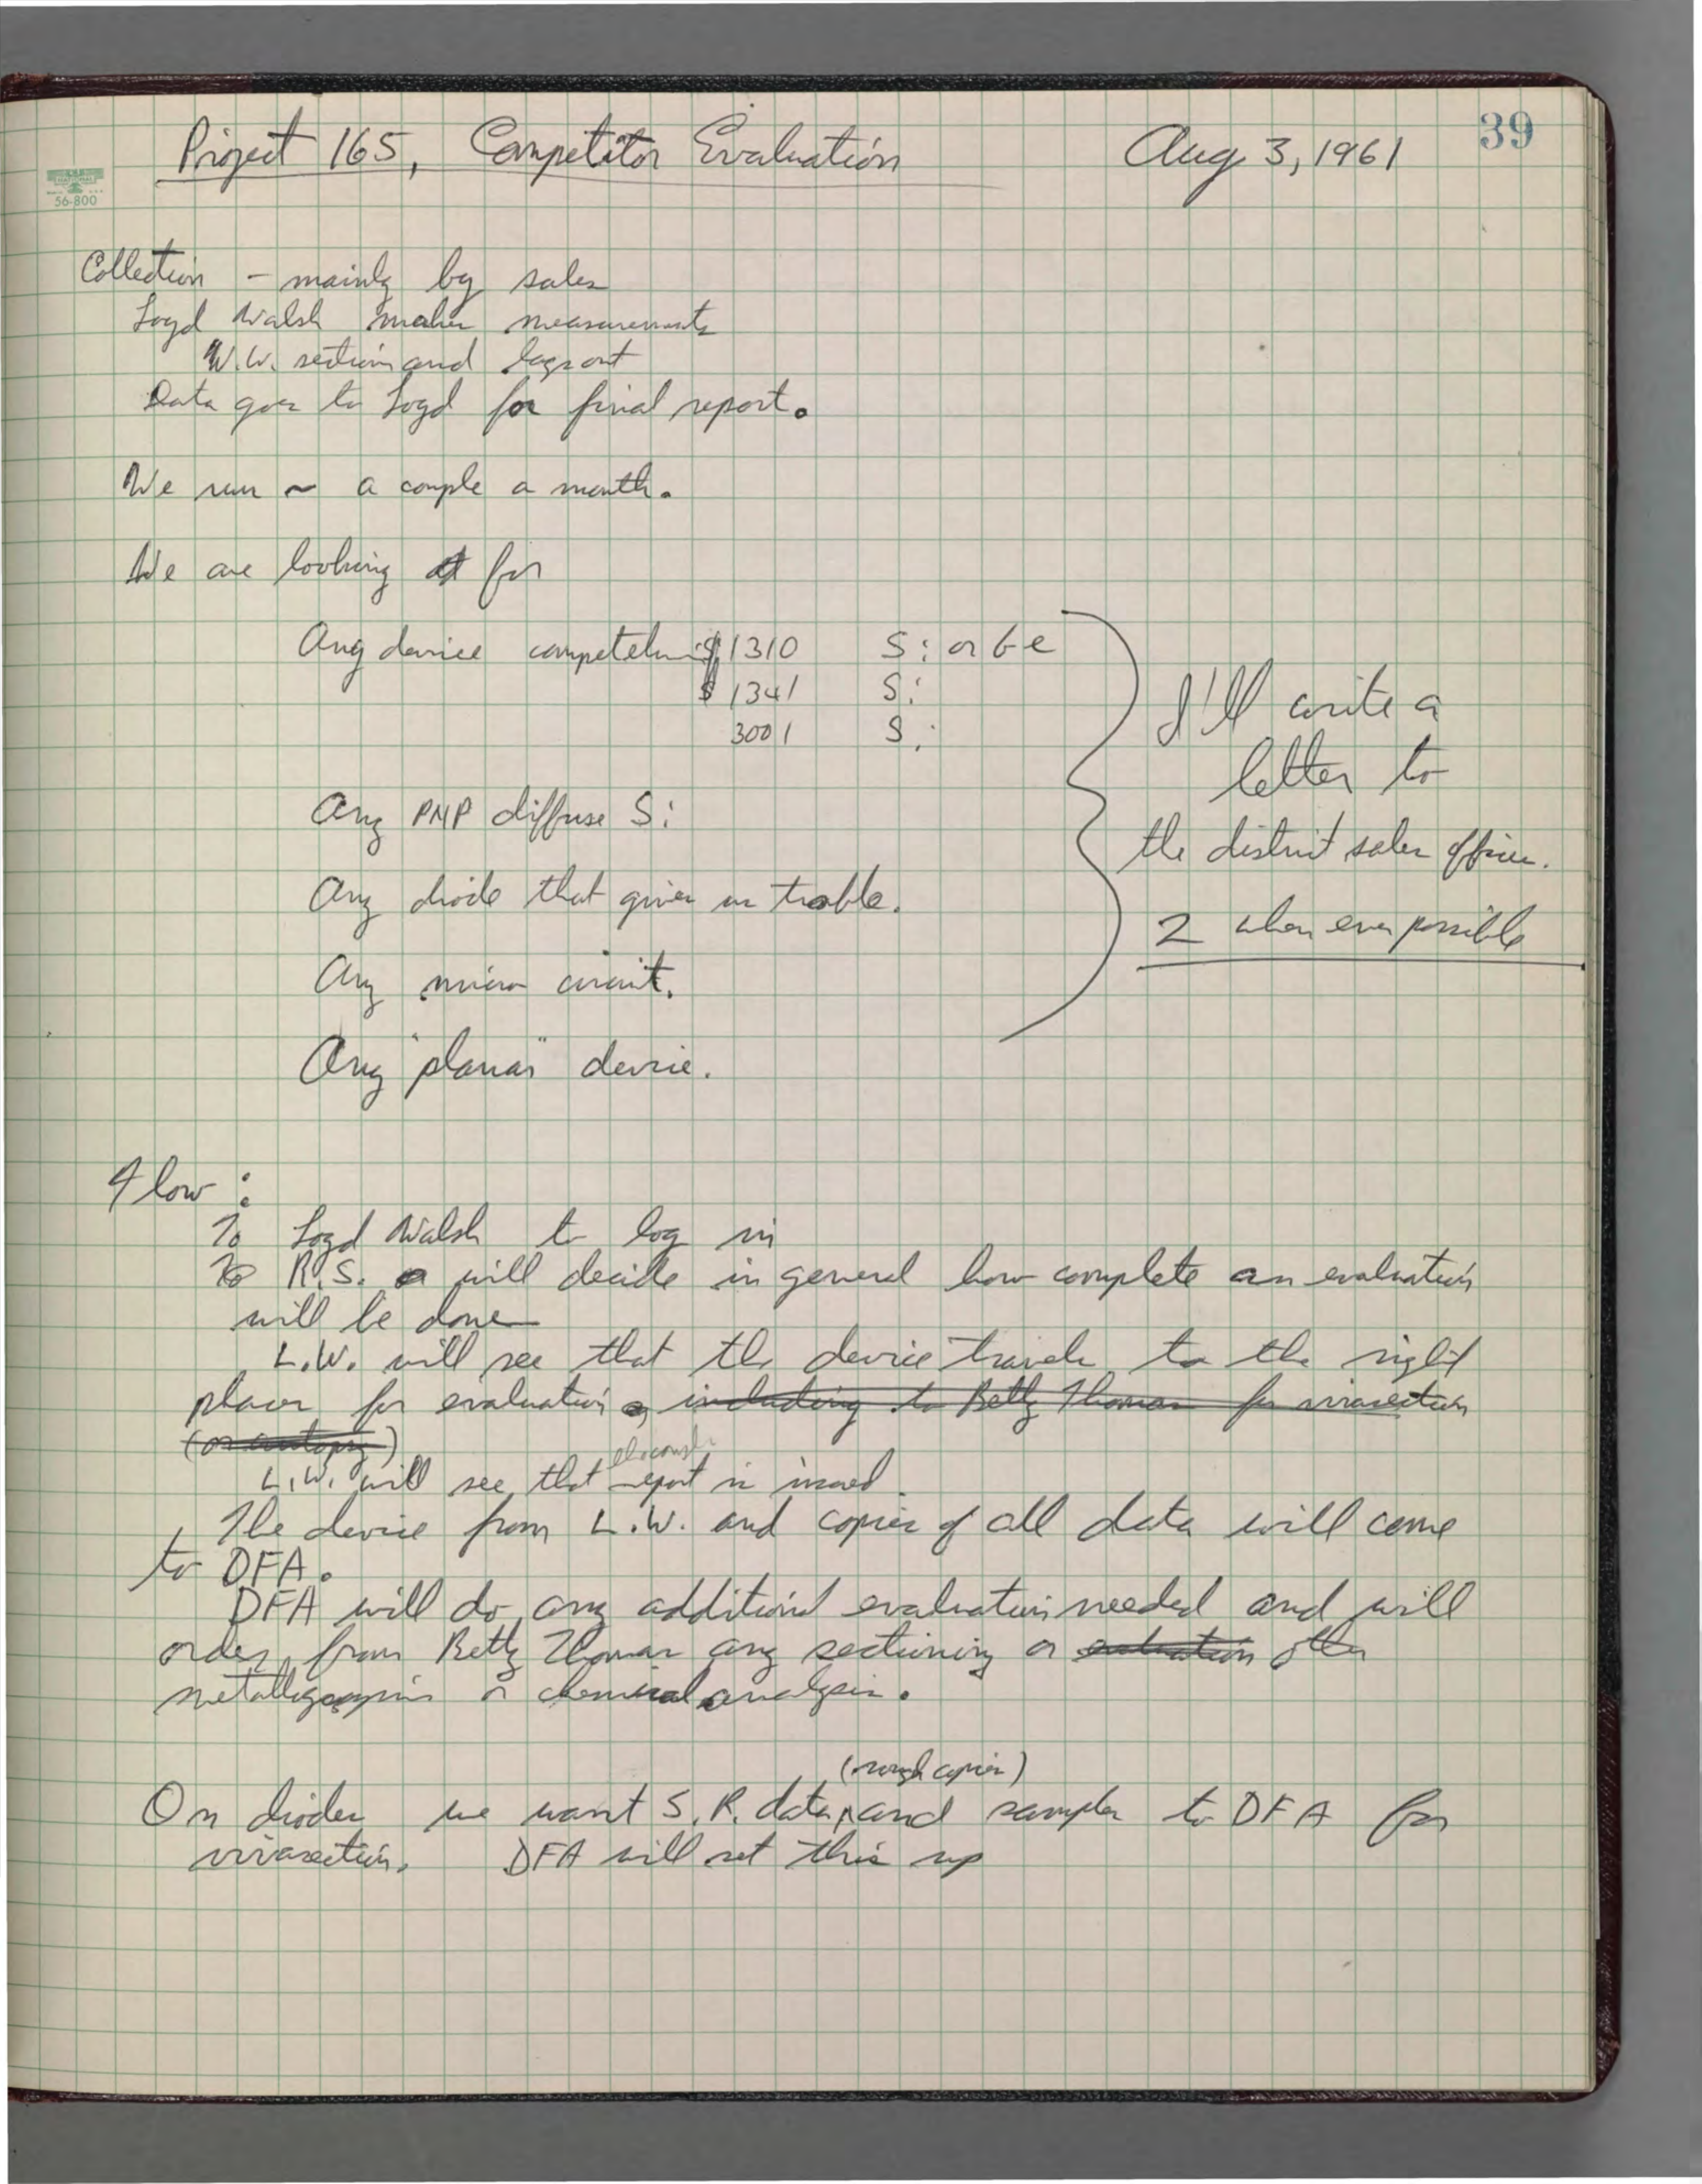 39
Project 165, Competitor Evaluation Aug 3, 1961
56-800
Collection - mainly by sales
Loyd Walsh makes measurements
W.W. section and
Data goes to Loyd for final report.
We run ~ a couple a month.
We are looking at for
Any device competeluing 1310 Si or Ge
1341 Si
3001 Si
Any PNP diffuse Si
Any diode that gives us trouble.
Any micro circuit.
Any "planar" device.
I'll write a
letter to
the district sales offices.
2 when ever possible
Flow:
To Loyd Walsh to log in
To R.S. will decide in general how complete an evaluation
will be done
L.W. will see that the device travels to the right
places for evaluation, including to Betty Thomas for vivasection
(or autopsy)
L.W. will see that report is issued.
The device from L.W. and copies of all data will come
to DFA.
DFA will do any additional evaluation needed and will
order from Betty Thomas any sectioning or evaluation other
or chemical analysis.
(rough copies)
On diodes we want S.R. data, and samples to DFA for
vivasection. DFA will set this up